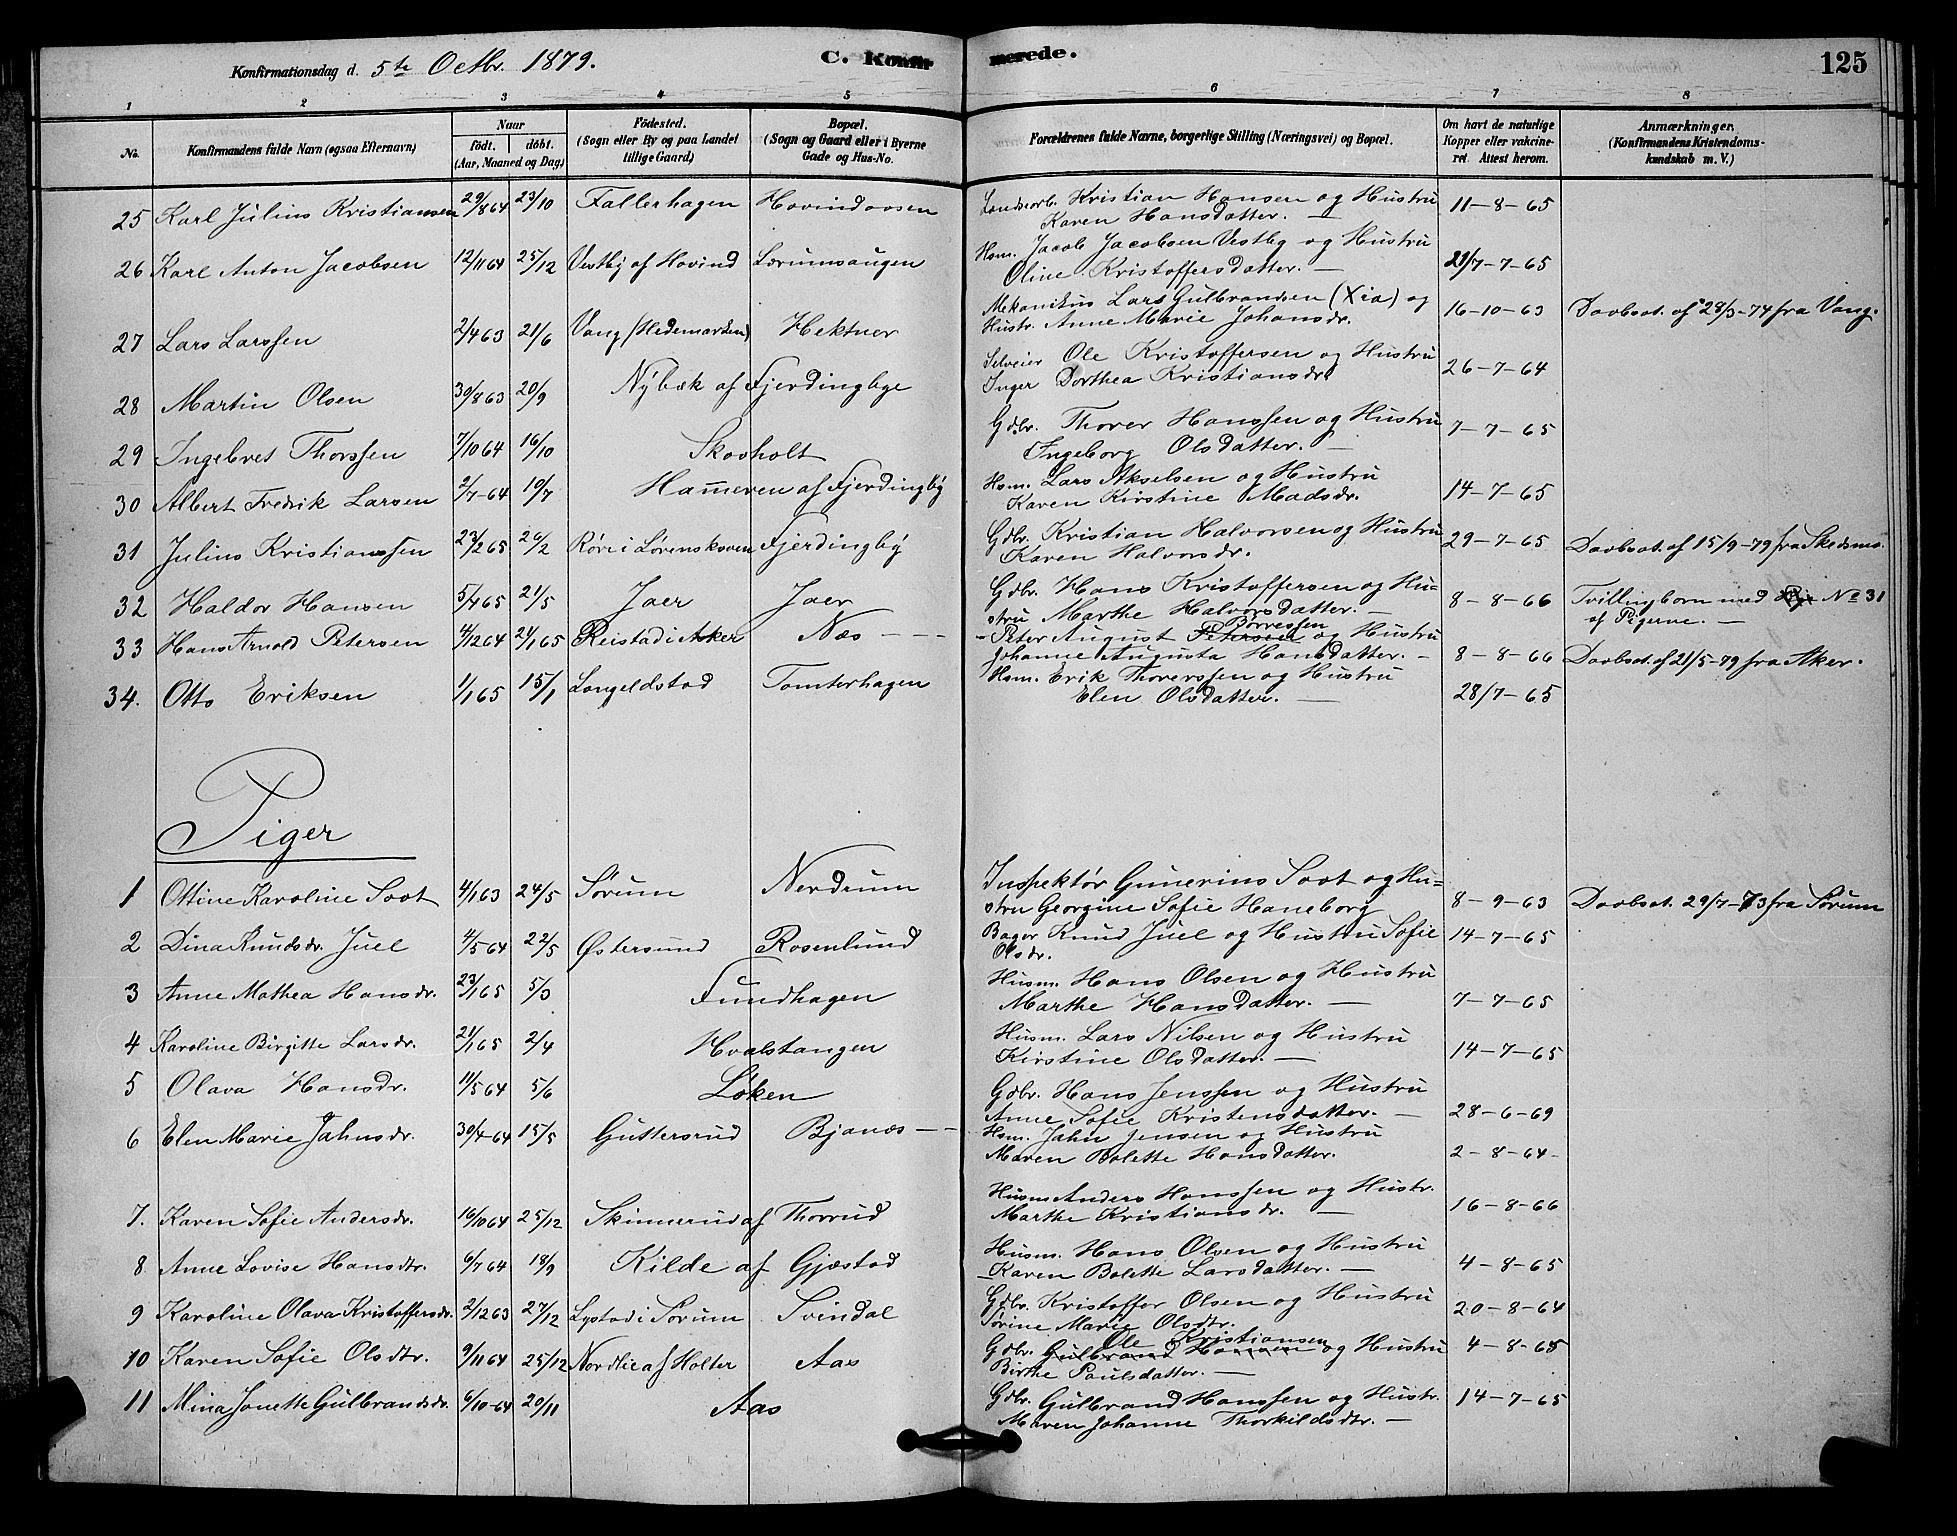 Konfirmationsdag d. 5te Octbr. 1879. C. Konfirmerede. 125
1 2 3 4 5 6 7 8
No. Konfirmandens fulde Navn (ogsaa Efternavn) Naar födt. döbt. (Aar, Maaned og Dag) Födested. (Sogn eller By og paa Landet tillige Gaard) Bopæl. (Sogn og Gaard eller i Byerne Gade og Hus-No. Forældrenes fulde Navne, borgerlige Stilling (Næringsvei) og Bopæl. Om havt de naturlige Kopper eller vakcineret. Attest herom. Anmærkninger. (Konfirmandens Kristendomskundskab m. V.)
25 Karl Julius Kristiansen 29/8 64 23/10 Fallerhagen Hovindaasen Kristian Hansen og Hustru Karen Hansdatter. — 11-8-65
26 Karl Anton Jacobsen 12/11 64 25/12 Vestby af Hovind Lærumsaugen Hsm. Jacob Jacobsen Vestby og Hustru Oline Kristoffersdatter. — 29/7-7-65
27 Lars Larssen 2/4 63 21/6 Vang (Hedemarken) Hektner Mekanikus Lars Gulbrandsen (Xia) og Hustr. Anne Marie Johansdr. 16-10-63 Daabsat. af 28/3-74 fra Vang.
28 Martin Olsen 30/8 63 20/9 Nybæk af Fjerdingbye Selveier Ole Kristoffersen og Hustru Inger Dorthea Kristiansdr. 26-7-64
29 Ingebret Thorssen 7/10 64 16/10 Skovholt Gdbr. Thorer Hanssen og Hustru Ingeborg Olsdatter. — 7-7-65
30 Albert Fredrik Larsen 2/7-64 10/7 Hameren af Fjerdingby Hsm. Lars Akselsen og Hustru Karen Kirstine Madsdr. 14-7-65
31 Julius Kristianssen 23/2 65 26/2 Röre i Lørenskoven Fjerdingby Gdbr. Kristian Halvorsen og Hustru Karen Halvorsdr. 29-7-65 Daabsat. af 15/9-79 fra Skedsmo.
32 Haldor Hansen 5/4 65 21/5 Jaer Jaer Gdbr. Hans Kristoffersen og Hustru Marthe Halvorsdatter. — 8-8-66 Tvillingbarn med No 31 af Pigerne. —
33 Hans Arnold Petersen 4/12 64 21/1 65 Reistad i Asker Næs - - Peter August Petersen Börresen og Hustru Johanne Augusta Hansdatter. - 8-8-66 Daabsat. af 21/5-79 fra Aker.
34. Otto Eriksen 1/1 65 15/1 Langeldstad Tomterhagen Hsm. Erik Thoverssen og Hustru Elen Olsdatter. — 28/7-65
Piger
1 Ottine Karoline Soot 4/1 63 24/5 Sørum Nerdrum Inspektör Gunerius Soot og Hustru Georgine Sofie Haneborg 8-9-63 Daabsat. 29/7-73 fra Sørum
2 Dina Knudsdr. Juel 4/5 64 22/5 Østersund Rosenlund Bager Knud Juel og Hustru Sofie Olsdr. 14-7-65
3 Anne Mathea Hansdr. 23/1 65 5/3 Fundhagen Husm. Hans Olsen og Hustru Marthe Hansdatter. — 7-7-65
4 Karoline Birgitte Larsdr. 21/1 65 2/4 Hvalstangen Husm. Lars Nilsen og Hustru Kirstine Olsdatter. — 14-7-65
5 Olava Hansdr. 11/5 64 5/6 Løken Gdbr. Hans Jenssen og Hustru Anne Sofie Kristensdatter. — 28-6-69
6 Elen Marie Jahnsdr. 30/4-64 15/5 Guttersrud Bjanæs - - Hsm. Jahn Jensen og Hustru Maren Bolette Hansdatter. 2-8-64-
7. Karen Sofie Andersdr. 16/10 64 25/12 Skinnerud af Thorrud Husm. Anders Hanssen og Hustr. Marthe Kristiansdr. — 16-8-66
8 Anne Lovise Hansdtr. 6/7 64 18/9 Kilde af Gjæstad Husm. Hans Olsen og Hustru Karen Bolette Larsdatter. — 4-8-65
9 Karoline Olava Kristoffersdr. 2/12 63 27/12 Lystad i Sørum Svindal Gdbr. Kristoffer Olsen og Hustru Sörine Marie Olsdtr. 20-8-64
10 Karen Sofie Olsdtr. 9/11 64 25/12 Nordlie af Holter Aas Gdbr. Gulbrand Hansen Ole Kristiansen og Hustru Birthe Paulsdatter. — 4-8-65
11 Mina Jonette Gulbrandsdr. 6/10-64 20/11 Aas Gdbr. Gulbrand Hanssen og Hustr. Maren Johanne Thorkildsdtr. — 14-7-65